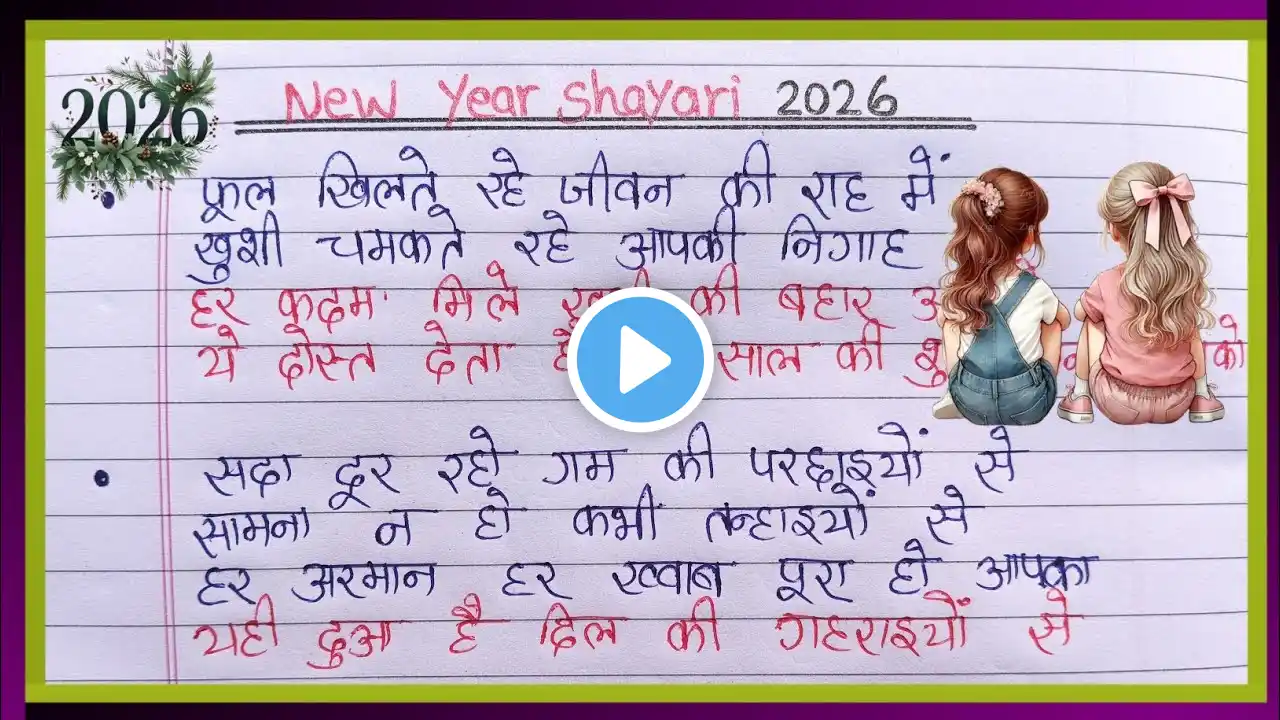 2026
New Year Shayari 2026
फूल खिलते रहे जीवन की राह में
खुशी चमकते रहे आपकी निगाह
हर कदम मिले की बहार
ये दोस्त देता साल की
सदा दूर रहो गम की परछाइयों से
सामना न हो कभी तन्हाइयों से
हर अरमान हर ख्वाब पूरा हो आपका
यही दुआ है दिल की गहराइयों से